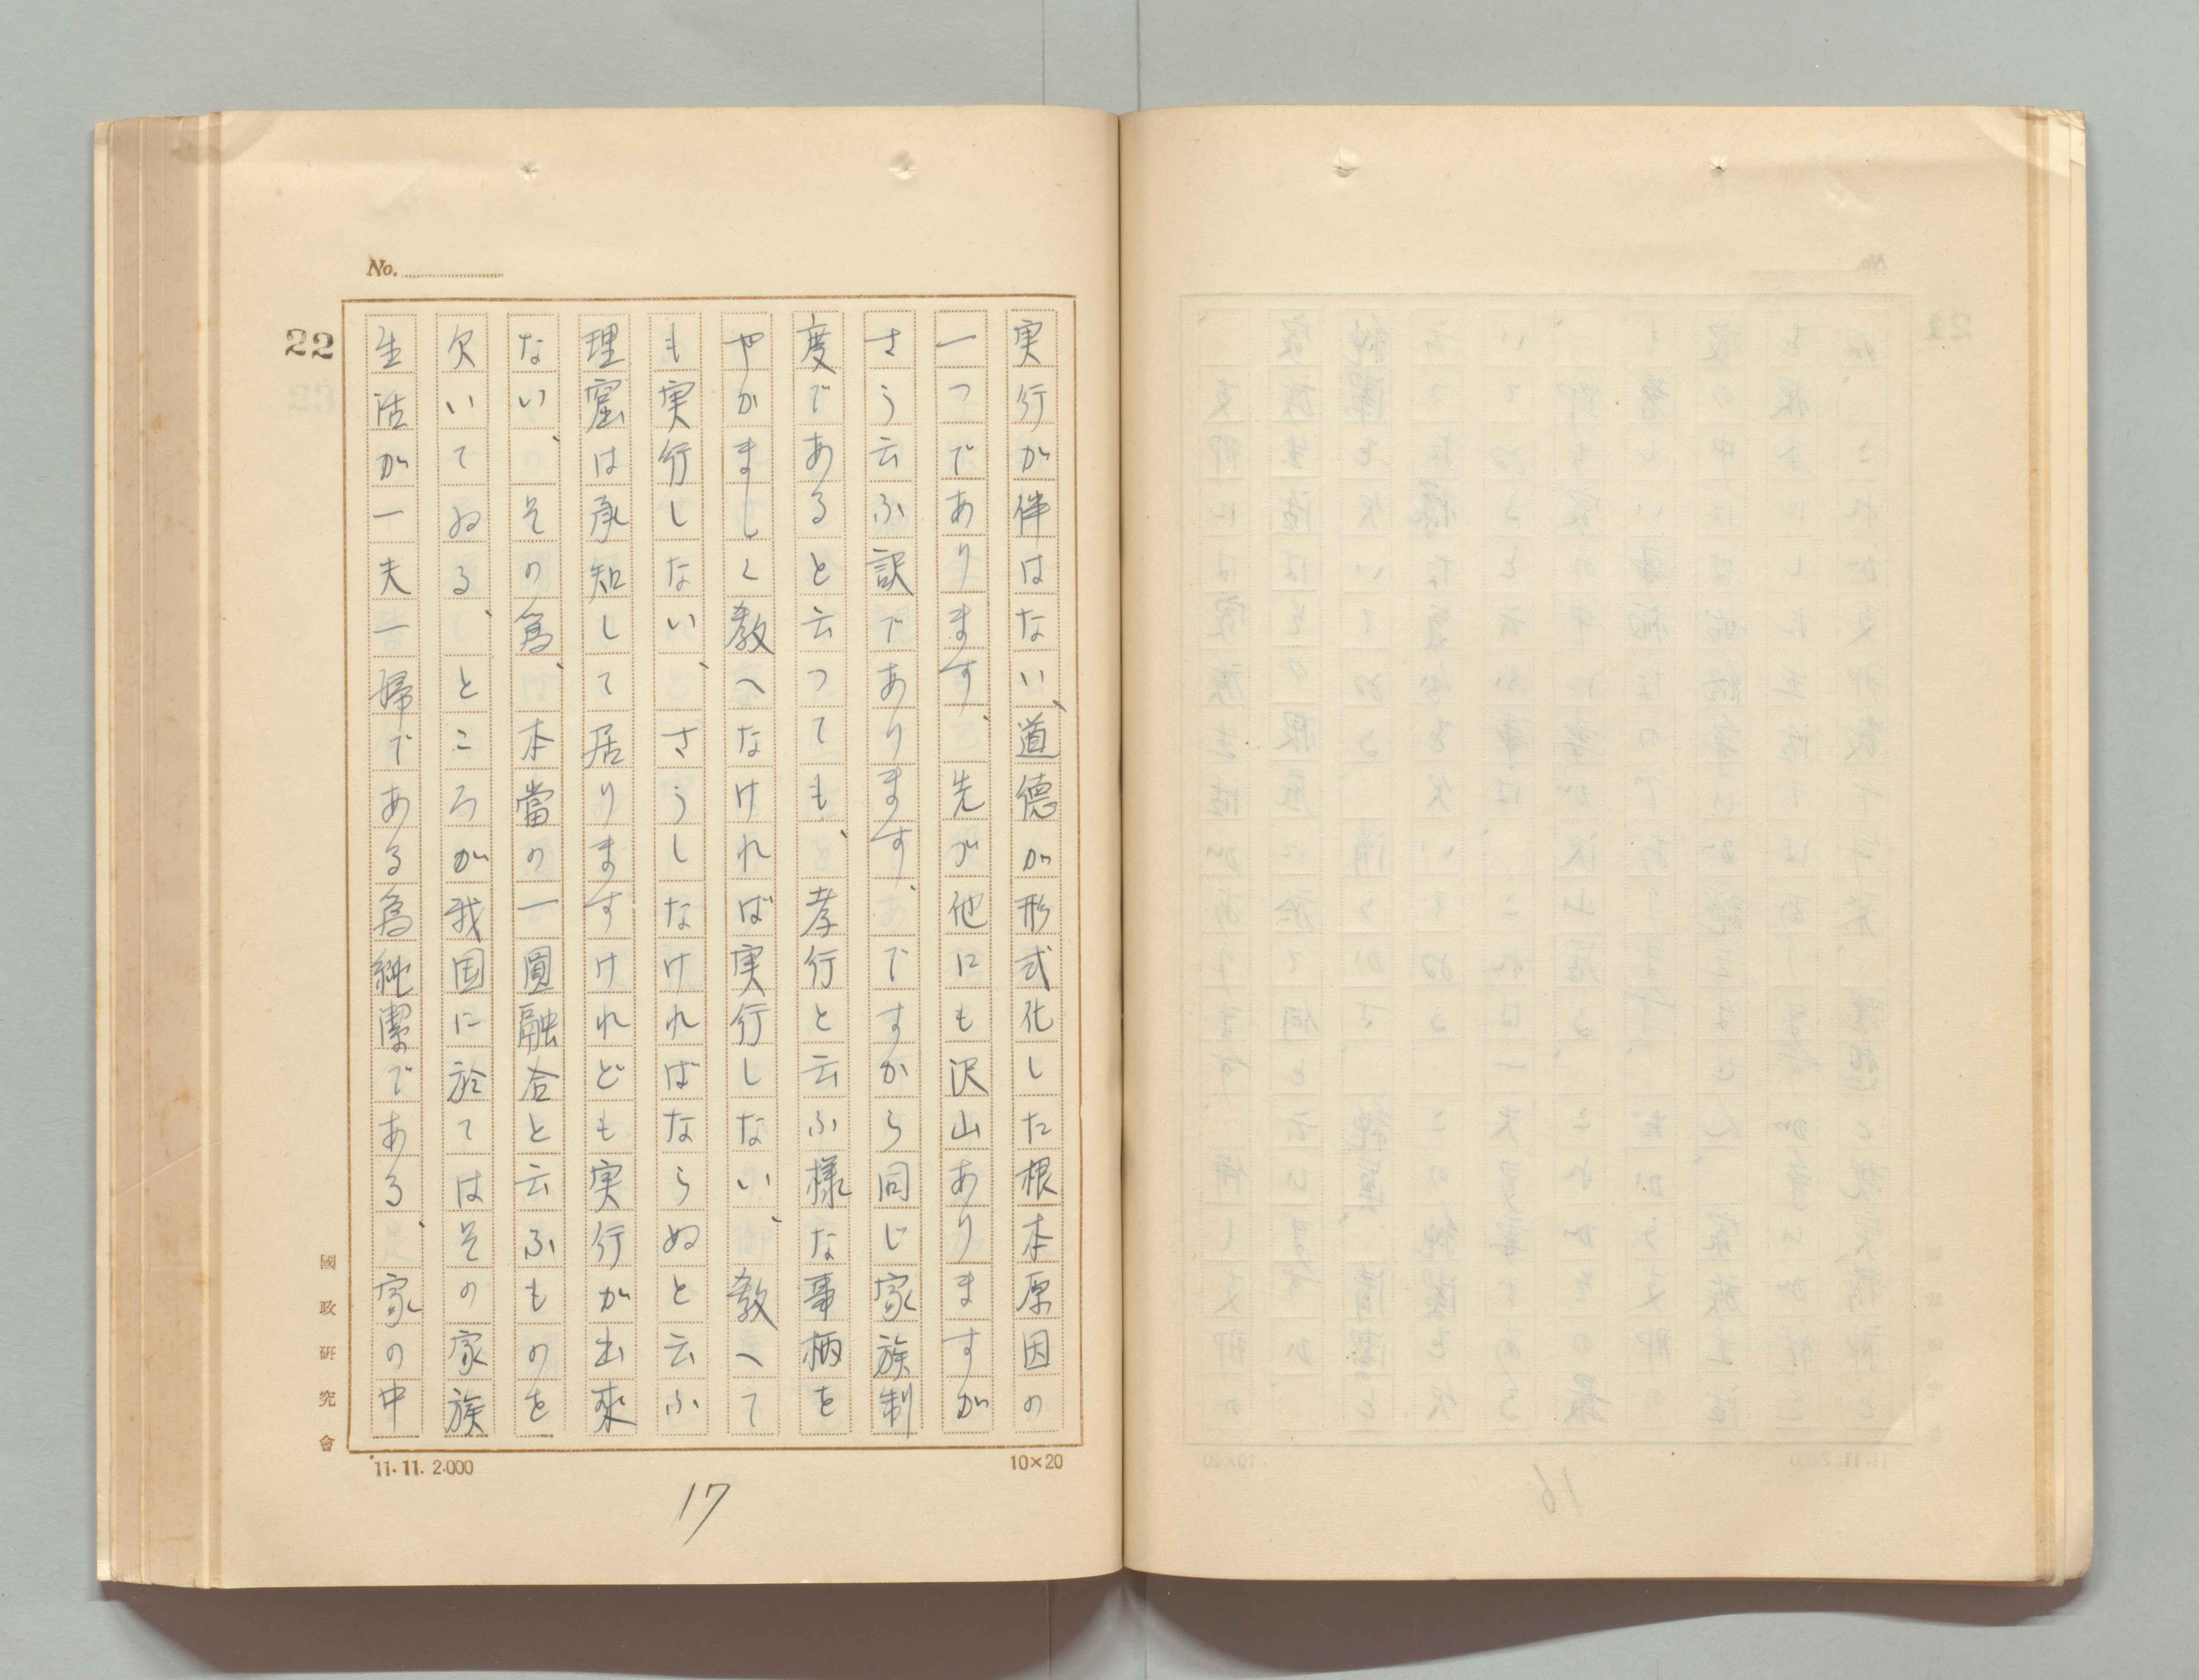 No.
22
実行が伴はない、道徳が形式化した根本原因の
一つであります、先づ他にも沢山ありますが
さう云ふ訳であります、ですから同じ家族制
度であると云つても、孝行と云ふ様な事柄を
やかましく教へなければ実行しない、教へて
も実行しない、さうしなければならぬと云ふ
理窟は承知して居りますけれども実行が出来
ない、その為、本當の一圓融合と云ふものを
欠いてゐる、ところが我国に於てはその家族
生活が一夫一婦である為純潔である、家の中
國政研究會
11.11.2.000
10×20
17